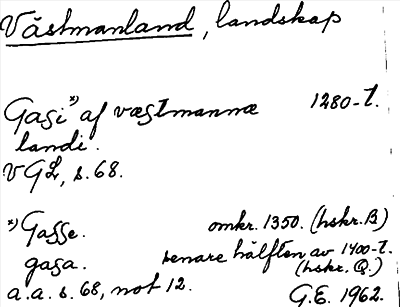 Västmanland, landskap
Gasi *) af væstmannæ 1280-t.
landi.
VGL, s. 68.
*) Gasse. omkr. 1350. (hskr. B)
gasa. senare hälften av 1400-t.
(hskr. Q.)
a.a. s. 68, not 12. G.E. 1962.